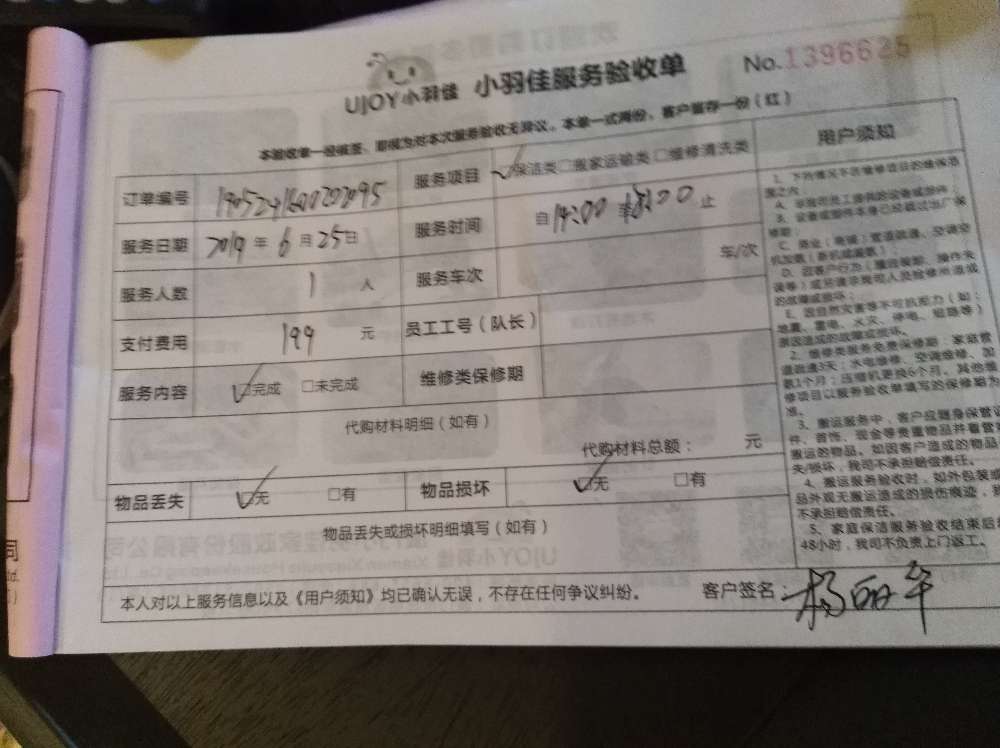 UJOY小羽佳 小羽佳服务验收单 No.1396625
本验收单一经核签，即视为对本次服务验收无异议。本单一式两份，客户留存一份（红）
订单编号 服务项目 保洁类 □搬家运输类 □维修清洗类
服务日期 2019年6月25日 服务时间 自14:00至18:00止
服务人数 1人 服务车次 车/次
支付费用 199元 员工工号（队长）
服务内容 ☑完成 □未完成 维修类保修期
代购材料明细（如有）
代购材料总额： 元
物品丢失 ☑无 □有 物品损坏 ☑无 □有
物品丢失或损坏明细填写（如有）
本人对以上服务信息以及《用户须知》均已确认无误，不存在任何争议纠纷。 客户签名：杨丽华
用户须知
1、下列情况不在维修项目的维保范
围之内：
A、非我司员工提供的设备或部件；
B、设备或部件本身已经超过出厂保
修期；
C、商业（商铺）管道疏通、空调空
D、因客户行为（擅自装卸、操作失
误等）或另请非我司人员检修所造成
的故障或损坏；
E、因自然灾害等不可抗拒力（如：
地震、雷电、水灾、停电、短路等）
原因造成的故障或损坏。
2、维修类服务免费保修期：家庭管
道疏通3天；水电维修、空调维修、加
氨1个月；压缩机更换6个月。其他维
修项目以服务验收单填写的保修期为
准。
3、搬运服务中，客户应随身保管证
件、首饰、现金等贵重物品并看管
搬运的物品。如因客户造成的物品
失/损坏，我司不承担赔偿责任。
4、搬运服务验收时，如外包装或
品外观无搬运造成的损伤痕迹，我
不承担赔偿责任。
5、家庭保洁服务验收结束后
48小时，我司不负责上门返工。